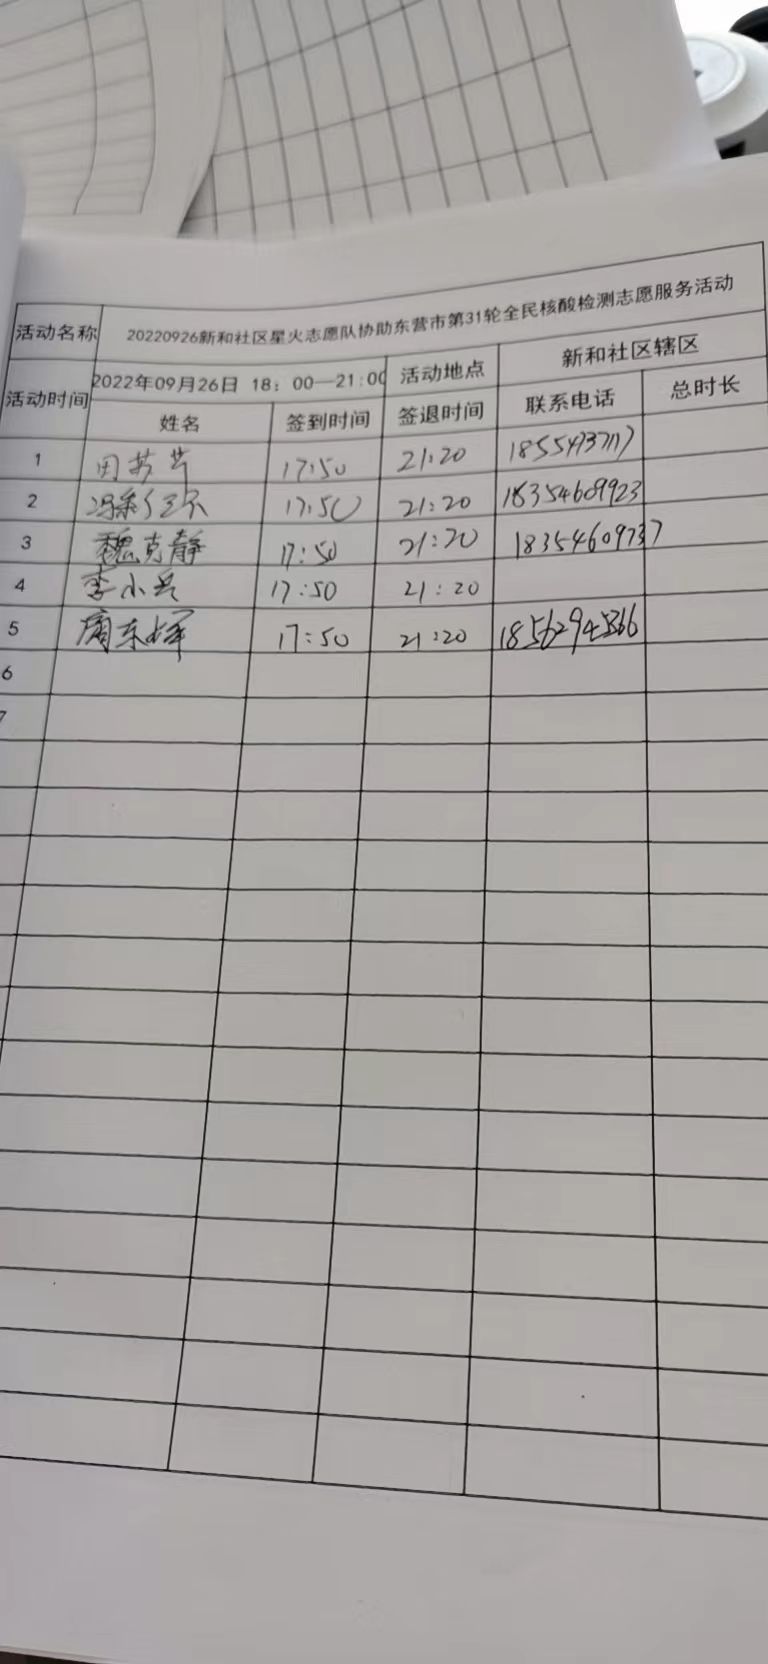 活动名称 20220926新和社区星火志愿队协助东营市第31轮全民核酸检测志愿服务活动
活动时间 2022年09月26日 18：00—21:00 活动地点 新和社区辖区
姓名 签到时间 签退时间 联系电话 总时长
1 田芳芳 17:50 21:20
2 17:50 21:20 18354609923
3 魏克静 17:50 21:20 18354609737
4 李小兵 17:50 21:20
5 周东辉 17:50 21:20 18562945366
6
7